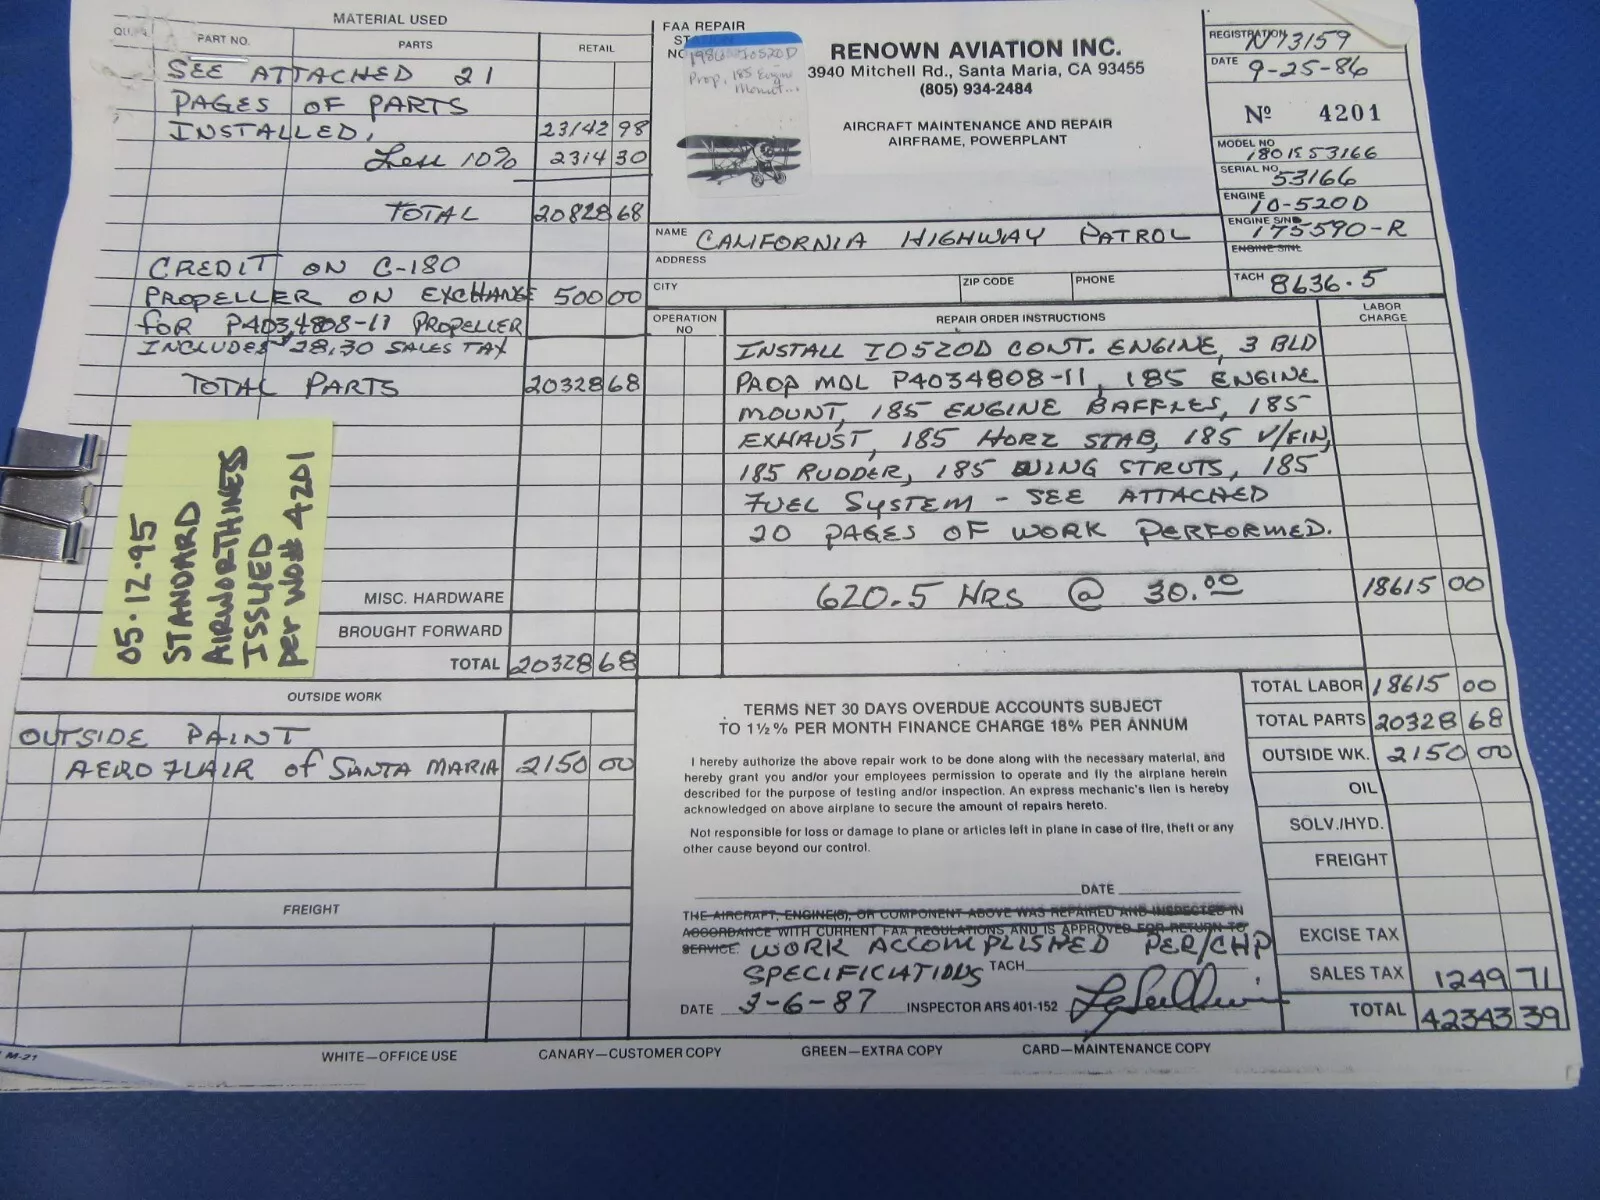 MATERIAL USED
PART NO. PARTS RETAIL
SEE ATTACHED 21
PAGES OF PARTS
INSTALLED, 23142 98
Less 10% 2314 30
TOTAL 20828 68
CREDIT ON C-180
PROPELLER ON EXCHANGE 500 00
for P4034808-11 PROPELLER
INCLUDES $28.30 SALES TAX
TOTAL PARTS 20328 68
MISC. HARDWARE
BROUGHT FORWARD
TOTAL 20328 68
05·12·95
STANDARD
AIRWORTHINES
ISSUED
Per WO# 4201
OUTSIDE WORK
OUTSIDE PAINT
AERO FLAIR of SANTA MARIA 2150 00
FREIGHT
FAA REPAIR
Prop, 185 Engine
RENOWN AVIATION INC.
3940 Mitchell Rd., Santa Maria, CA 93455
(805) 934-2484
AIRCRAFT MAINTENANCE AND REPAIR
AIRFRAME, POWERPLANT
REGISTRATION N73159
DATE 9-25-86
Nº 4201
MODEL NO. 180 K 53166
SERIAL NO. 53166
ENGINE IO-520D
ENGINE S/N 175590-R
TACH 8636.5
NAME CALIFORNIA HIGHWAY PATROL
ADDRESS
CITY ZIP CODE PHONE
OPERATION NO REPAIR ORDER INSTRUCTIONS LABOR CHARGE
INSTALL IO520D CONT. ENGINE, 3 BLD
PROP MDL P4034808-11, 185 ENGINE
MOUNT, 185 ENGINE BAFFLES, 185
EXHAUST, 185 HORZ STAB, 185 V/FIN,
185 RUDDER, 185 WING STRUTS, 185
FUEL SYSTEM - SEE ATTACHED
20 PAGES OF WORK PERFORMED.
620.5 HRS @ 30.00 18615 00
TERMS NET 30 DAYS OVERDUE ACCOUNTS SUBJECT
TO 1½% PER MONTH FINANCE CHARGE 18% PER ANNUM
I hereby authorize the above repair work to be done along with the necessary material, and
hereby grant you and/or your employees permission to operate and fly the airplane herein
described for the purpose of testing and/or inspection. An express mechanic's lien is hereby
acknowledged on above airplane to secure the amount of repairs hereto.
Not responsible for loss or damage to plane or articles left in plane in case of fire, theft or any
other cause beyond our control.
DATE
THE AIRCRAFT, ENGINE(S), OR COMPONENT ABOVE WAS REPAIRED AND INSPECTED IN
ACCORDANCE WITH CURRENT FAA REGULATIONS AND IS APPROVED FOR RETURN TO
SERVICE. WORK ACCOMPLISHED PER/CHP
SPECIFICIATIONS TACH
DATE 3-6-87 INSPECTOR ARS 401-152
TOTAL LABOR 18615 00
TOTAL PARTS 20328 68
OUTSIDE WK. 2150 00
OIL
SOLV./HYD.
FREIGHT
EXCISE TAX
SALES TAX 1249 71
TOTAL 42343 39
M-21
WHITE—OFFICE USE CANARY—CUSTOMER COPY GREEN—EXTRA COPY CARD—MAINTENANCE COPY